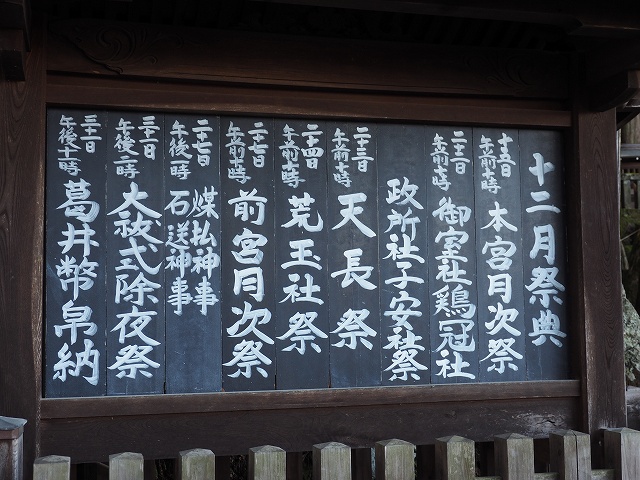 十二月祭典
十五日
午前十時
本宮月次祭
二十二日
午前十時
御室社鶏冠社
政所社子安社祭
二十三日
午前十時
天長祭
二十四日
午前十時
荒玉社祭
二十七日
午前十時
前宮月次祭
二十七日
午後一時
煤払神事
石送神事
三十一日
午後二時
大祓式除夜祭
三十一日
午後十一時
葛井幣帛納